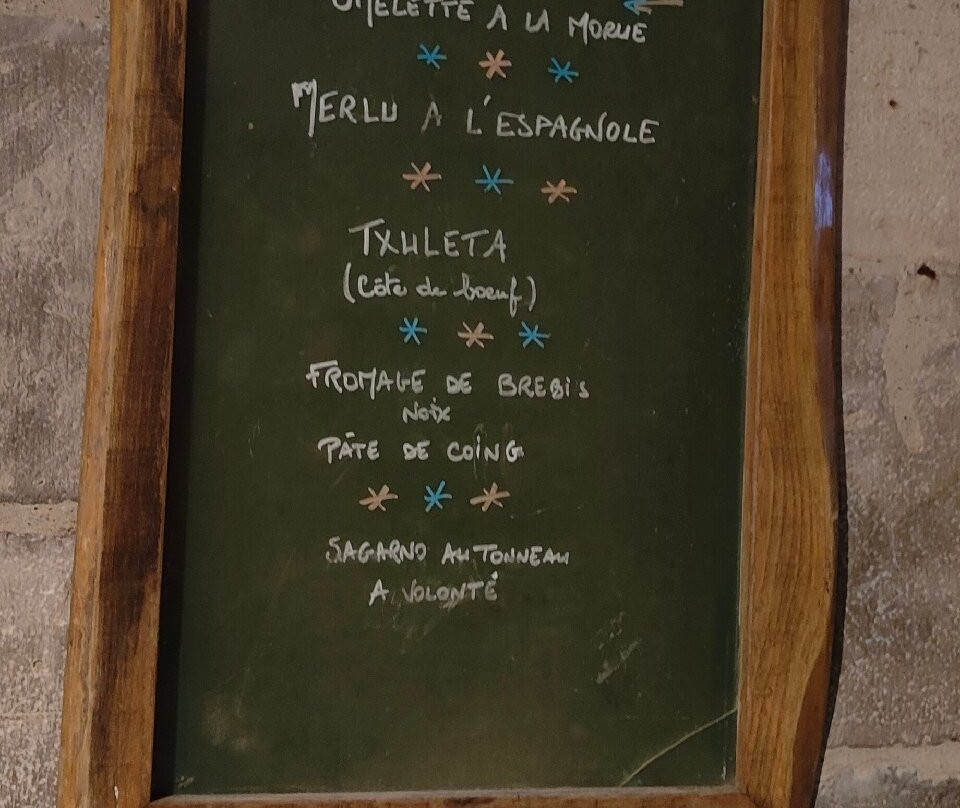 OMELETTE A LA MORUE
MERLU A L'ESPAGNOLE
TXULETA
(Côte de boeuf)
FROMAGE DE BREBIS
NOIX
PÂTE DE COING
SAGARNO AU TONNEAU
A VOLONTÉ